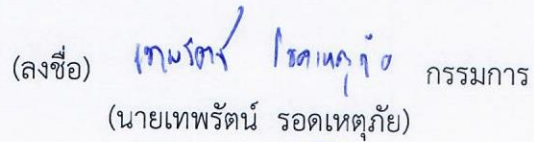 (ลงชื่อ) เทพรัตน์ รอดเหตุภัย กรรมการ
(นายเทพรัตน์ รอดเหตุภัย)